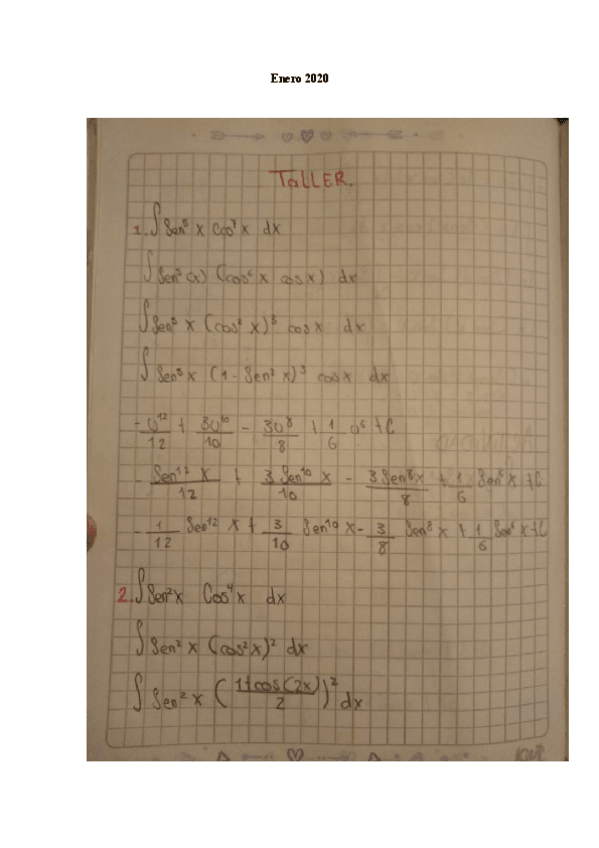 Enero 2020
TALLER.
1. ∫ Sen⁵ x Cos⁷ x dx
∫ Sen⁵(x) (cos⁶ x cos x) dx
∫ Sen⁵ x (cos² x)³ cos x dx
∫ Sen⁵ x (1 - Sen² x)³ cos x dx
- u¹²/12 + 3u¹⁰/10 - 3u⁸/8 + 1/6 u⁶ + C
- Sen¹² x/12 + 3 Sen¹⁰ x/10 - 3 Sen⁸ x/8 + 1/6 Sen⁶ x + C
- 1/12 Sen¹² x + 3/10 Sen¹⁰ x - 3/8 Sen⁸ x + 1/6 Sen⁶ x + C
2. ∫ Sen² x Cos⁴ x dx
∫ Sen² x (cos² x)² dx
∫ Sen² x (1+cos(2x)/2)² dx